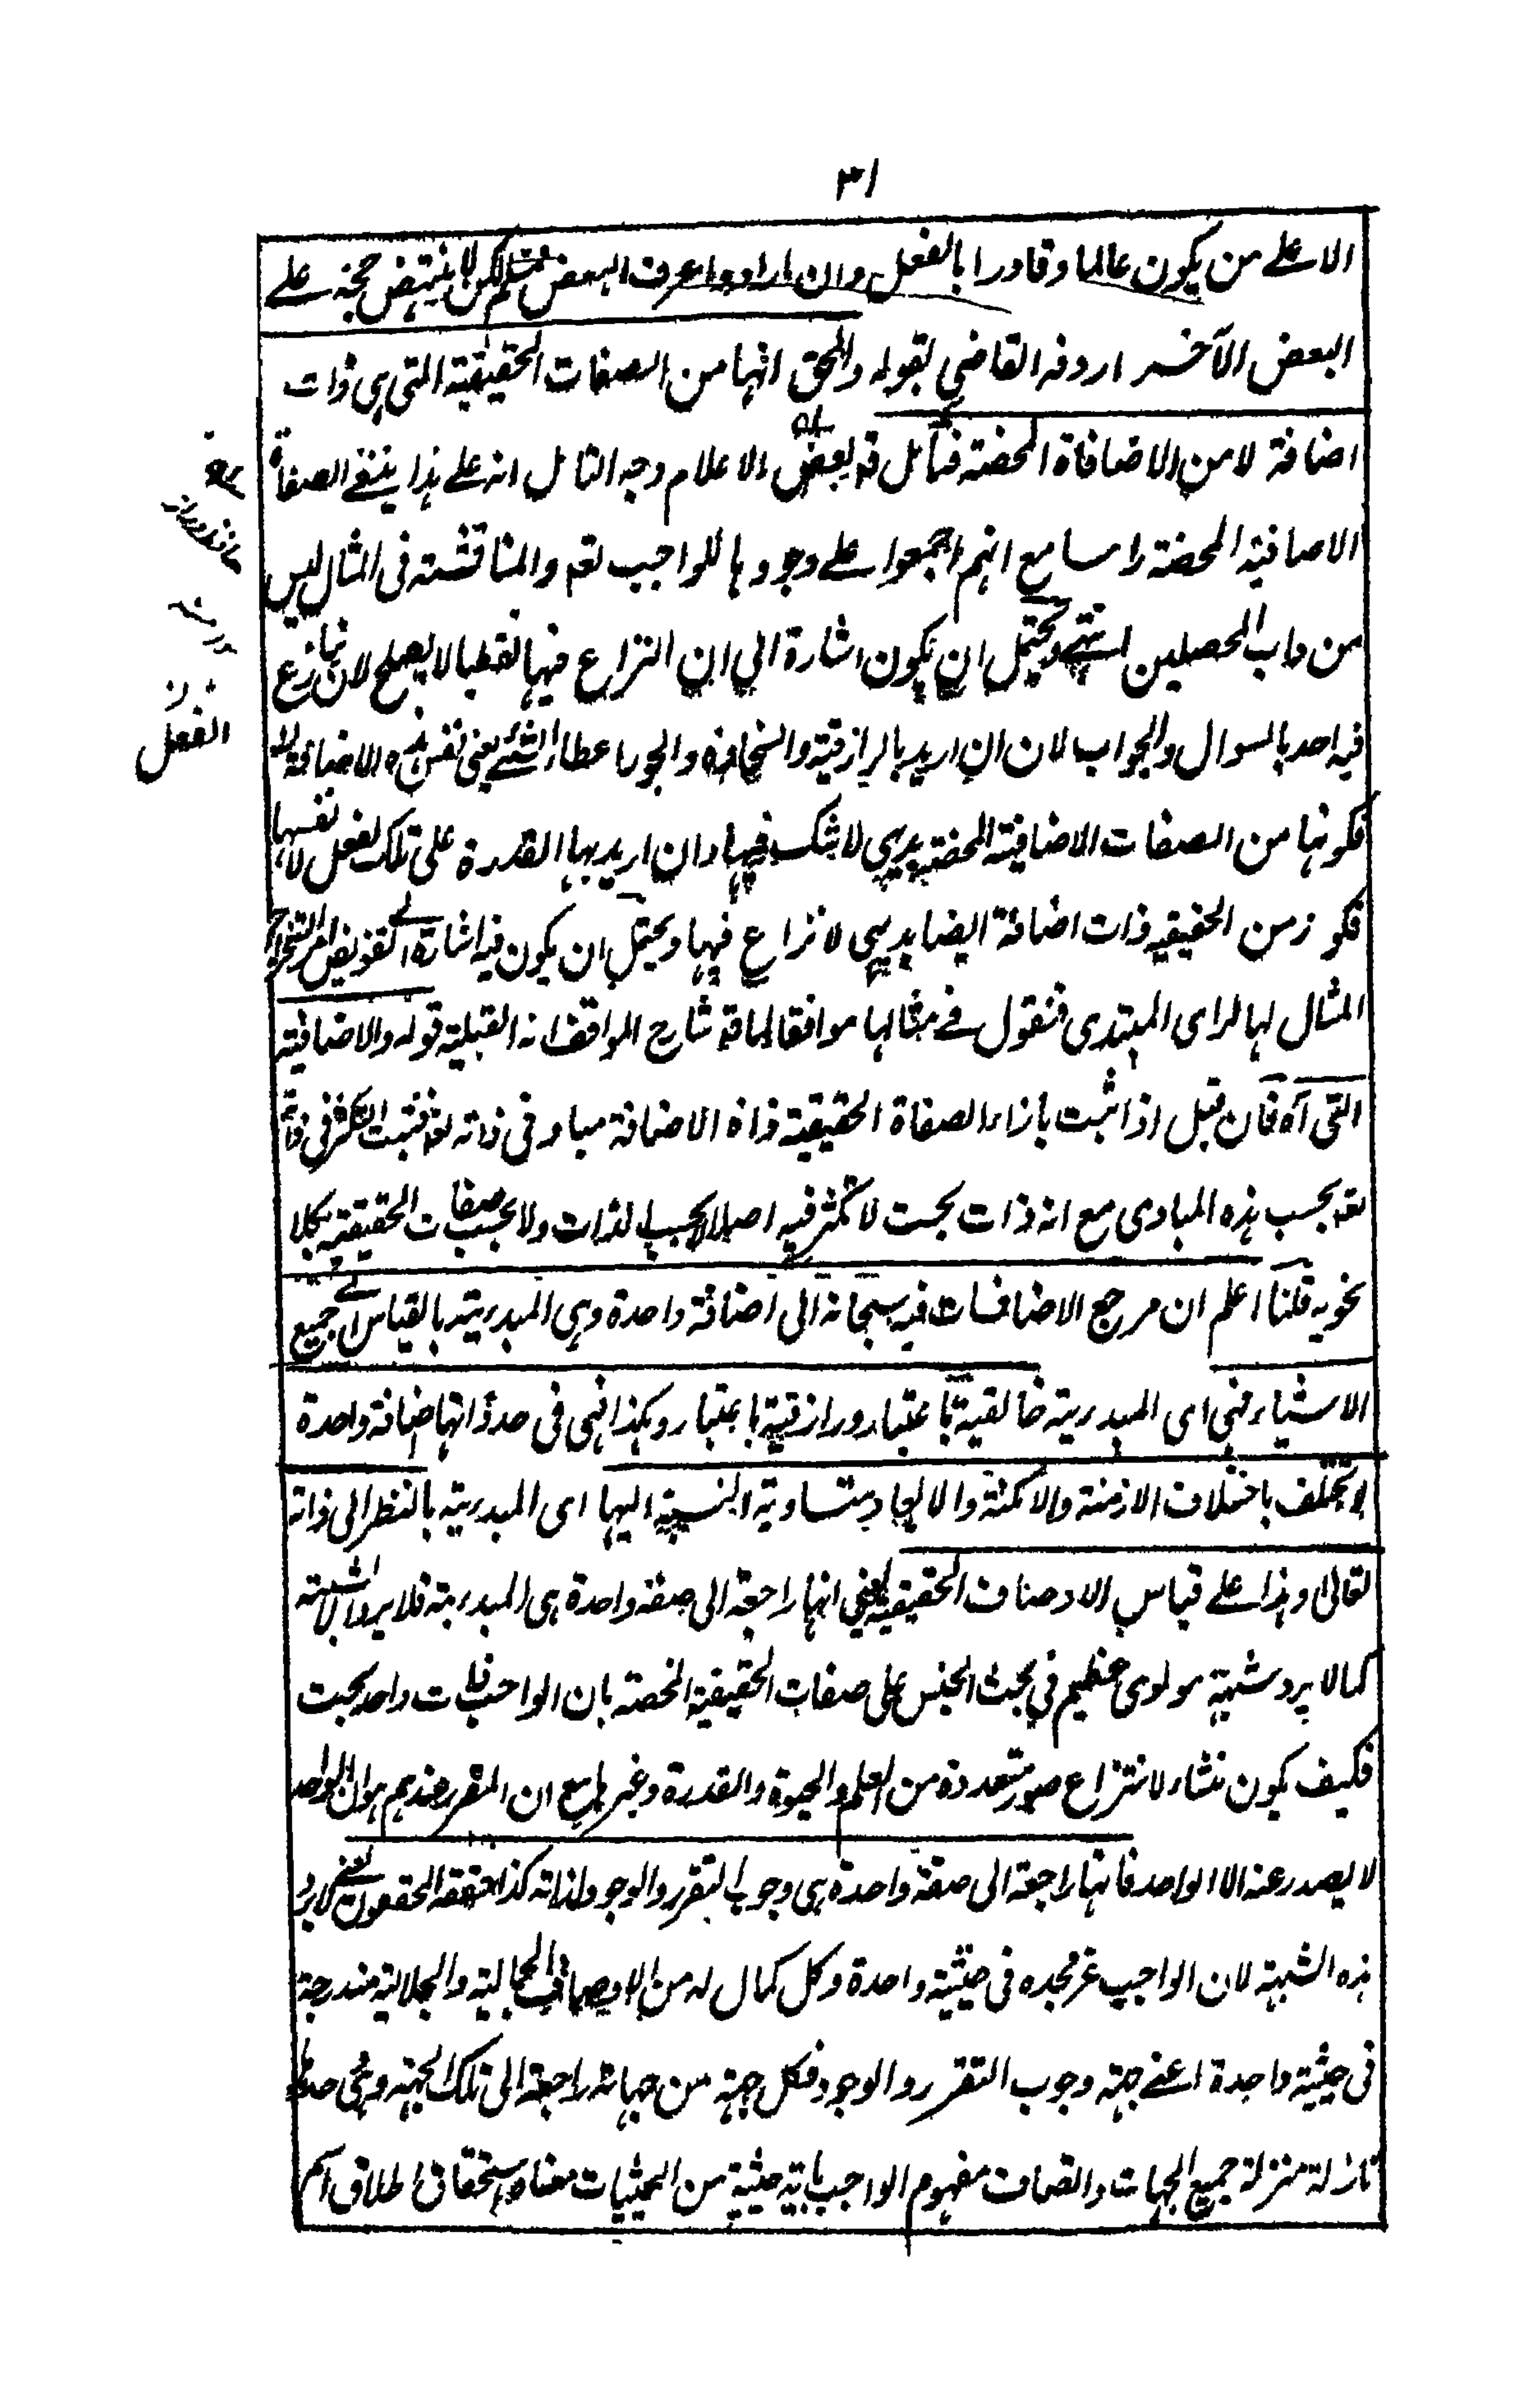 ٣١
الا على من يكون عالما وقادرا بالفعل وان ارادوا عرف البعض فمسلم لكن لا ينتهض حجة على
البعض الآخر اردفه القاضي بقوله والحق انها من الصفات الحقيقية التى هي ذات
اضافة لا من الاضافاة المحضة فتأمل قه بعض الاعلام وجه التامل انه على هذا ينفى الصفاة
الاضافية المحضة راسا مع انهم اجمعوا على وجودها للواجب تعه والمناقشة فى المثال ليس
من داب المحصلين انتهى ويحتمل ان يكون اشارة الى ان النزاع فيها لفظيا لا يصلح لان ينازع
فيه احد بالسوال والجواب لان ان اريد بالرازقية والسخاوة والجود اعطاء الشئ يعنى نفس هذه الاضافة
فكونها من الصفات الاضافية المحضة بديهي لا شك فيها وان اريد بها القدرة على تلك الفعل لا نفسها
فكو زمن الحقيقيه ذات اضافة ايضا بديهي لا نزاع فيها ويحتمل ان يكون فيه اشارة الى تفويض امر استخراج
المثال لها لراى المبتدى فنقول فى مثالها موافقا لما قه شارح المواقف انه القبلية قوله والاضافية
التى آه فان قيل اذا ثبت بازاء الصفاة الحقيقية ذاة الاضافة مباد فى ذاته تعه فثبت التكثر فى ذاته
تعه بحسب هذه المبادى مع انه ذات بحت لا تكثر فيه اصلا لا بحسب الذات ولا بحسب صفات الحقيقية بكلا
نحويه قلنا اعلم ان مرجع الاضافات فيه سبحانه الى اضافة واحدة وهي المبدئية بالقياس الى جميع
الاشياء فهي اى المبدئية خالقية باعتبار ورازقية باعتبار وهكذا فهى فى حد ذاتها اضافة واحدة
لا تختلف باختلاف الازمنة والامكنة والابعاد متساوية النسبة اليها اى المبدئية بالنظر الى ذاته
تعالى وهذا على قياس الاوصاف الحقيقية يعني انها راجعة الى صفة واحدة هى المبدئية فلا يرد الشبهة
كما لا يرد شبهة مولوى عظيم في بحث الجنس على صفات الحقيقية المحضة بان الواجب ذات واحد بحت
فكيف يكون منشاء لانتزاع صور متعددة من العلم والحيوة والقدرة وغيرها مع ان المقرر عندهم هو ان الواحد
لا يصدر عنه الا الواحد فانها راجعة الى صفة واحدة هى وجوب التقرر والوجود لذاته كذا حققه المحققون يعنى لا يرد
هذه الشبهة لان الواجب عز مجده فى حيثية واحدة وكل كمال له من الاوصاف الجمالية والجلالية مندرجة
فى حيثية واحدة اعنى جهة وجوب التقرر والوجود فكل جهة من جهاته راجعة الى تلك الجهة وهى حدها
نازلة منزلة جميع الجهات واتصاف مفهوم الواجب باية حيثية من الحيثيات معناه استحقاق اطلاق اسم
الفعل